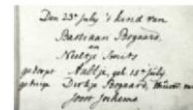 Den 23ᵉ July 't kind van
Bastiaan Bogaard
en
Neeltje Smits
gedoopt Aaltje, geb 15ᵉ July
getuige Dirkje Bogaard, Huisvr van
Joost Jochems